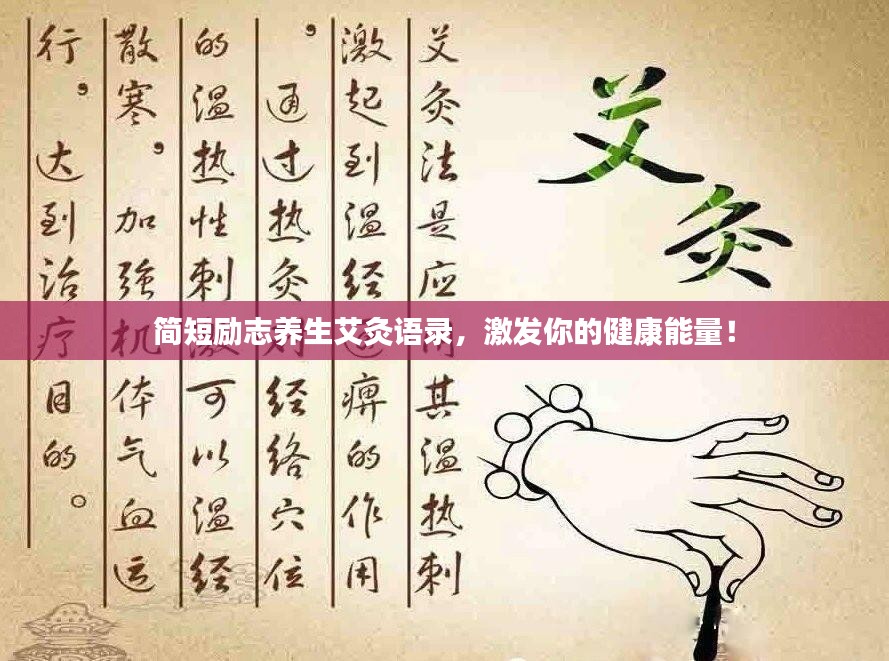 艾灸
艾灸法是应用其温热刺
激起到温经痹的作用
，通过热灸经络穴位
的温热性刺激可以温经
散寒，加强机体气血运
行，达到治疗目的。
简短励志养生艾灸语录，激发你的健康能量！